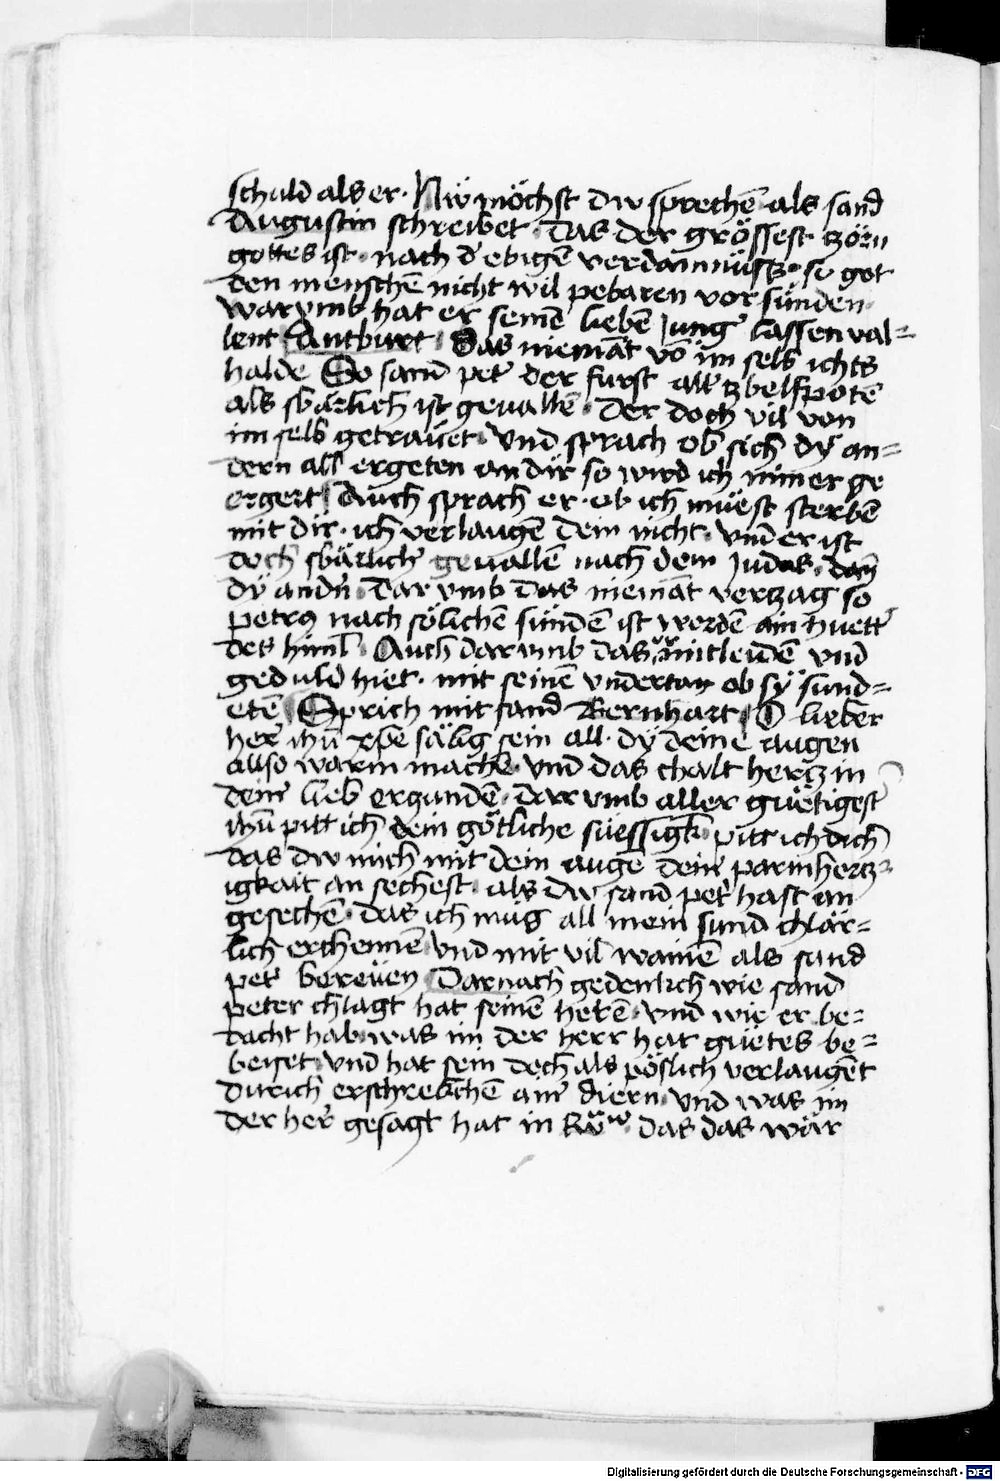 schuld als er · Nw möchst dw sprechē als sand
Augustin schreibet · das der grössest zörn
gottes ist · nach d' ebigē verdamnüss · so got
den menschē nicht wil pebaren vor sünden
warvmb hat er seinē liebē Jung' lassen val=
lent Antburt · Das niemāt vō im selb ichts
halde So sand pet' der furst all' zbelfpotē
als sbärlich ist geuallē · der doch vil von
im selb getrauet · vnd sprach ob sich dÿ an=
dern all ergeten an dir so wird ich nimer ge
ergert Auch sprach er · ob ich müest sterbē
mit dir · ich verlaugē dein nicht · vnd er ist
doch sbärlich' geuallē nach dem Judas · dan̄
dÿ andn̄ · Darvmb das niemāt verzag so
petrus nach sölichē sündē ist wordē ain huett'
des himl · Auch darvmb das er mitleidē vnd
geduld hiet · mit seinē vndertan ob sÿ sund=
etē Sprich mit sand Bernhart O lieber
her ihū xpe sälig sein all · dÿ deine augen
allso warm machē · vnd das chalt hertz in
dein' lieb erzundē · darvmb aller güetigest'
ihū pitt ich dein götliche süessigk · pitt ich dich
das dw mich mit dein auge dein' parmhertz=
igkait an sechest · als dw sand pet' hast an
gesechē · das ich müg all mein sund chlär=
lich erchennē vnd mit vil wainē als sand
pet' bereüen Darnach gedenkch wie sand
peter chlagt hat seinē herrē · vnd wie er be=
dacht hab was im der herr hat guetes be=
beiset · vnd hat sein doch als pöslich verlaugēt
durich erschrekchē ain' diern · vnd was im
der her gesagt hat in das das wär